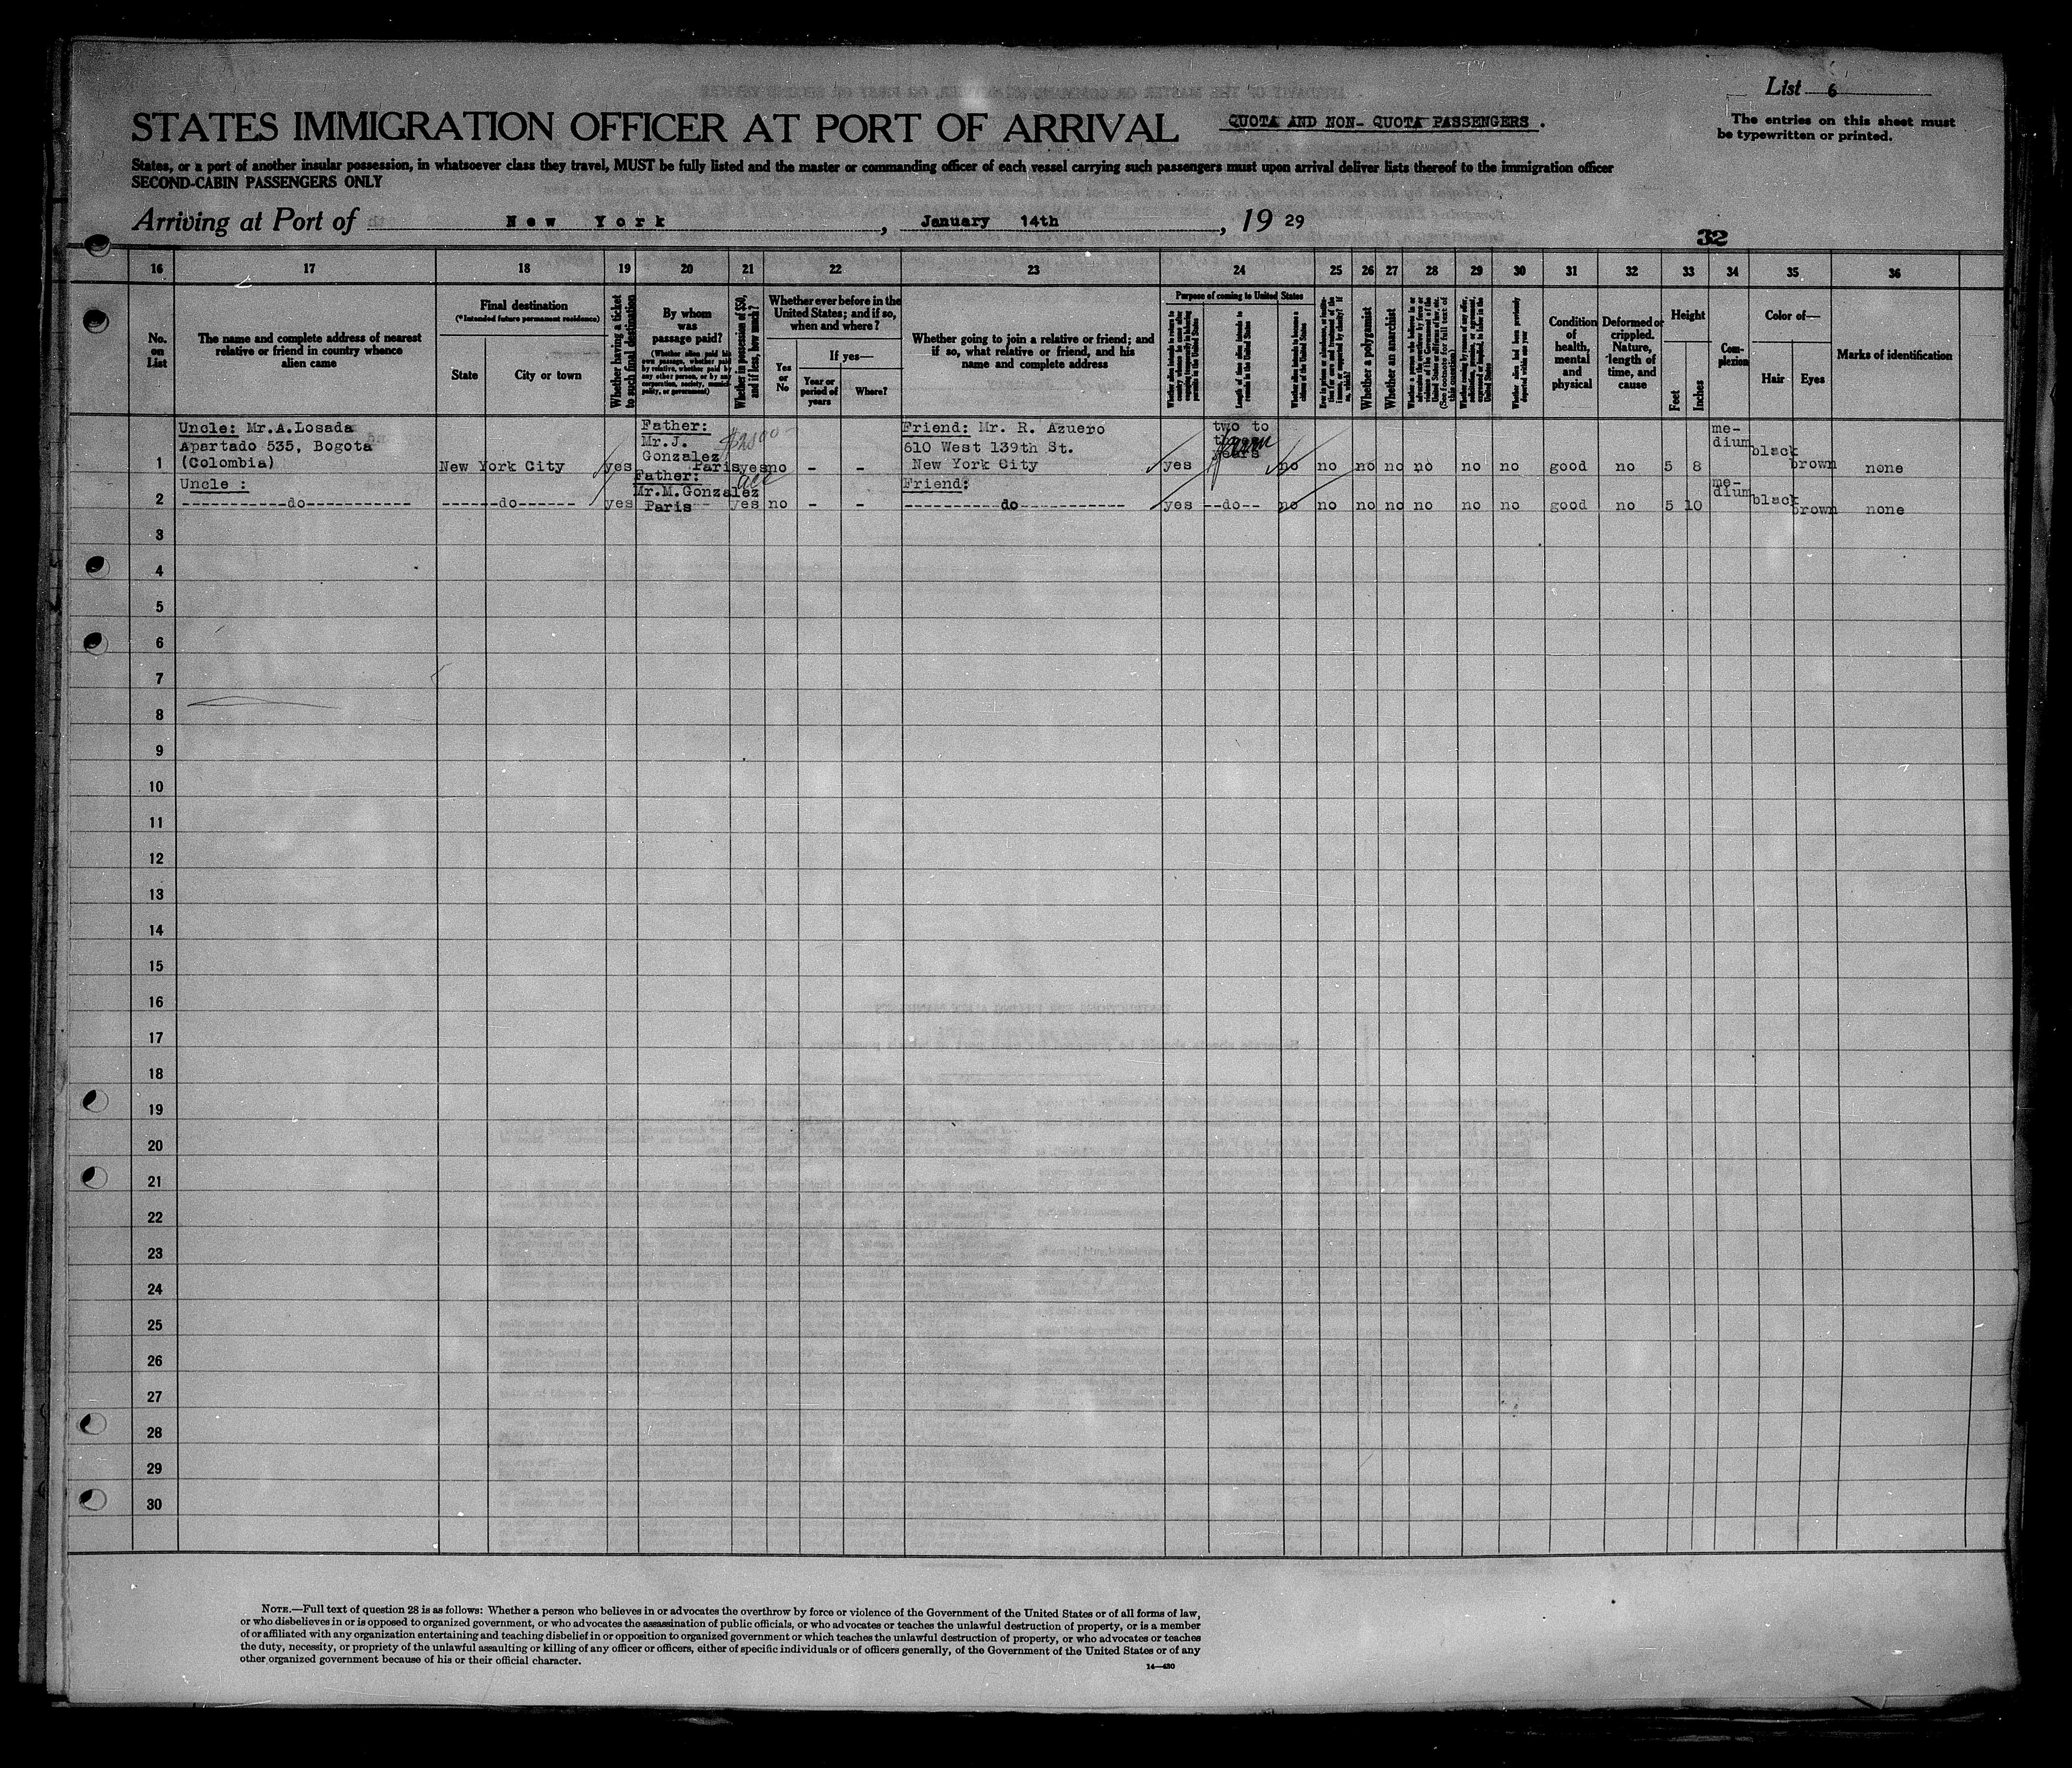 List 6
STATES IMMIGRATION OFFICER AT PORT OF ARRIVAL
QUOTA AND NON- QUOTA PASSENGERS .
The entries on this sheet must
be typewritten or printed.
States, or a port of another insular possession, in whatsoever class they travel, MUST be fully listed and the master or commanding officer of each vessel carrying such passengers must upon arrival deliver lists thereof to the immigration officer
SECOND-CABIN PASSENGERS ONLY
Arriving at Port of New York, January 14th, 19 29
32
16 17 18 19 20 21 22 23 24 25 26 27 28 29 30 31 32 33 34 35 36
No. on List
The name and complete address of nearest relative or friend in country whence alien came
Final destination
(*Intended future permanent residence)
State
City or town
Whether having a ticket to such final destination
By whom was passage paid?
(Whether alien paid his own passage, whether paid by relative, whether paid by any other person, or by any corporation, society, municipality, or government)
Whether in possession of $50, and if less, how much?
Whether ever before in the United States; and if so, when and where?
Yes or No
If yes—
Year or period of years
Where?
Whether going to join a relative or friend; and if so, what relative or friend, and his name and complete address
Purpose of coming to United States
Length of time alien intends to remain in the United States
Whether alien intends to become a citizen of the United States
Whether a polygamist
Whether an anarchist
Whether alien had been previously deported within one year
Condition of health, mental and physical
Deformed or crippled. Nature, length of time, and cause
Height
Feet
Inches
Complexion
Color of—
Hair
Eyes
Marks of identification
1
Uncle: Mr.A.Losada
Apartado 535, Bogota
(Colombia)
New York City
yes
Father:
Mr.J.
Gonzalez
Paris
yes
no
-
-
Friend: Mr. R. Azuero
610 West 139th St.
New York City
yes
two to
years
no
no
no
no
no
no
no
good
no
5
8
me-
dium
black
brown
none
2
Uncle :
------------do------------
------do-------
yes
Father:
Mr.M.Gonzalez
Paris
yes
no
-
-
Friend:
-----------do-------------
yes
--do--
no
no
no
no
no
no
no
good
no
5
10
me-
dium
black
brown
none
3
4
5
6
7
8
9
10
11
12
13
14
15
16
17
18
19
20
21
22
23
24
25
26
27
28
29
30
NOTE.—Full text of question 28 is as follows: Whether a person who believes in or advocates the overthrow by force or violence of the Government of the United States or of all forms of law,
or who disbelieves in or is opposed to organized government, or who advocates the assassination of public officials, or who advocates or teaches the unlawful destruction of property, or is a member
of or affiliated with any organization entertaining and teaching disbelief in or opposition to organized government or which teaches the unlawful destruction of property, or who advocates or teaches
the duty, necessity, or propriety of the unlawful assaulting or killing of any officer or officers, either of specific individuals or of officers generally, of the Government of the United States or of any
other organized government because of his or their official character.
14—430